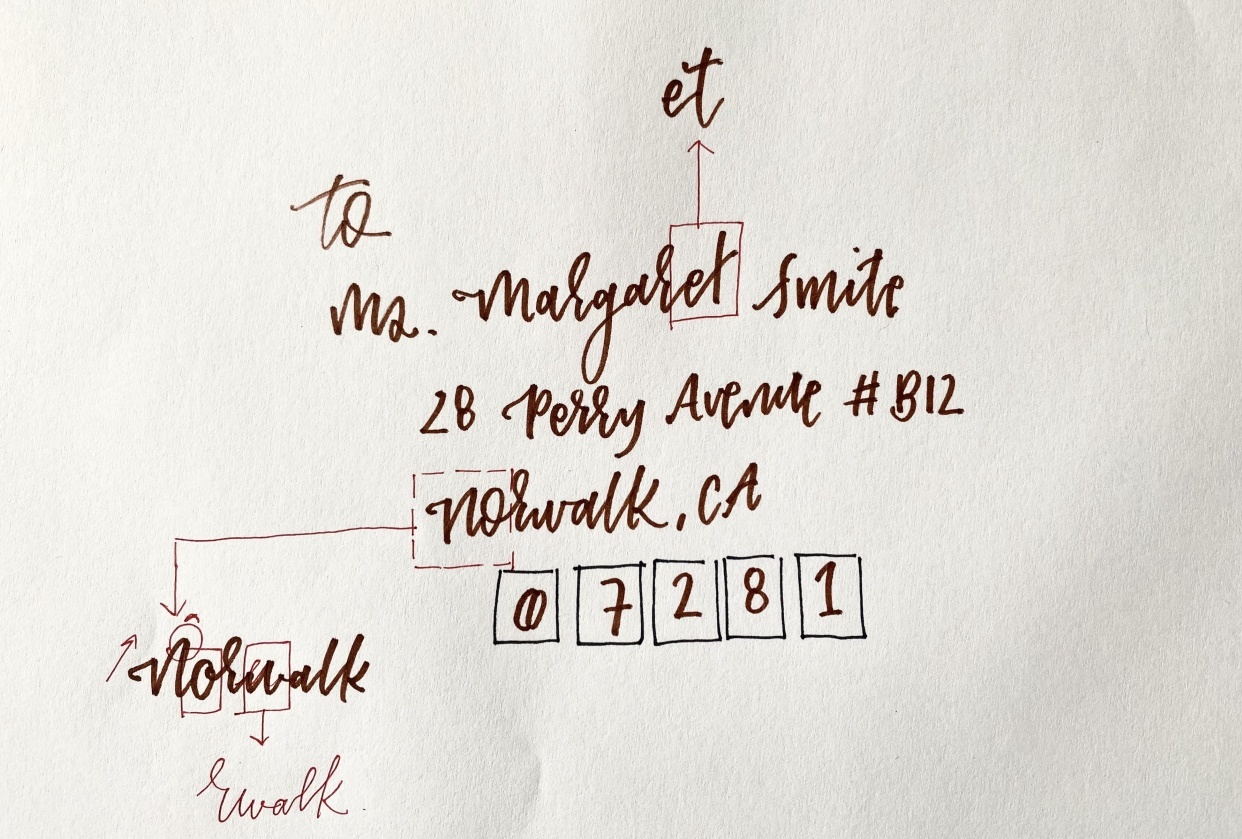 et
to
Ms. Margaret Smite
28 Perry Avenue #B12
Norwalk, CA
07281
Norwalk
rwalk